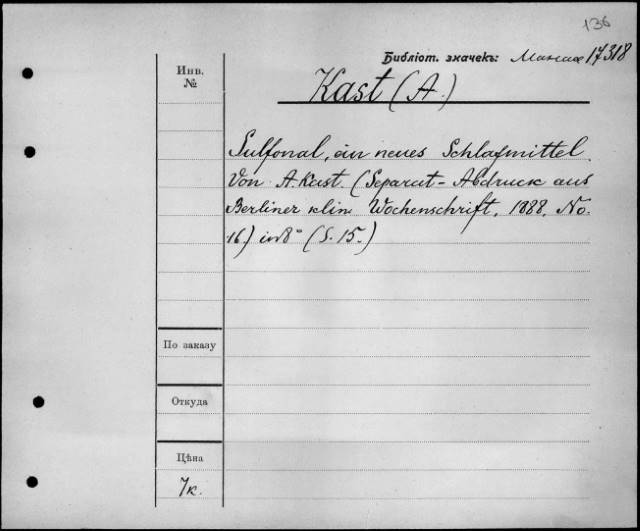 136
Библіот. значекъ: 17318
Инв.
№
Kast (A.)
Sulfonal, ein neues Schlafmittel.
Von A. Kast. (Separat-Abdruck aus
Berliner klin. Wochenschrift, 1888, No.
16.) in 8° (S. 15.)
По заказу
Откуда
Цѣна
7к.